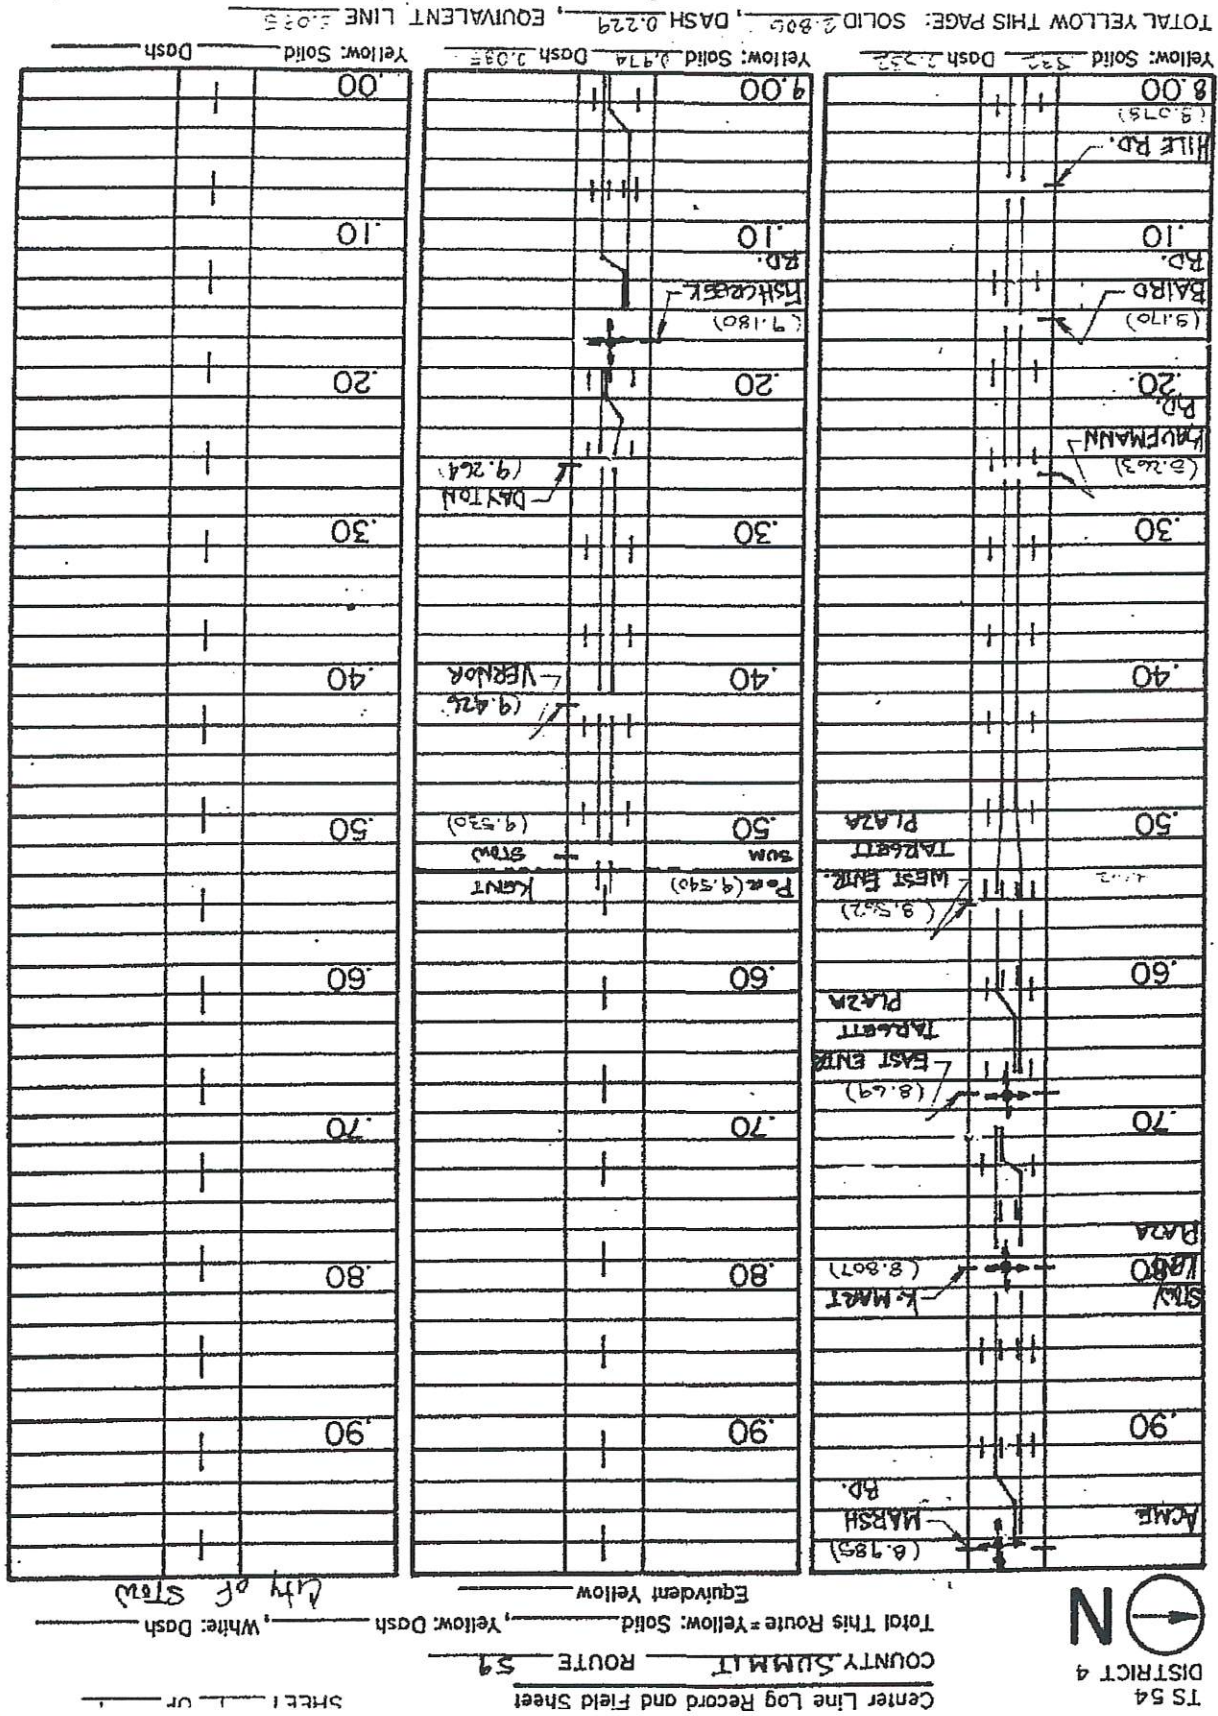 TS 54
DISTRICT 4
N
Center Line Log Record and Field Sheet
SHEET OF
COUNTY SUMMIT ROUTE 59
Total This Route = Yellow: Solid , Yellow: Dash , White: Dash
Equivalent Yellow
City of STOW
ACME
MARSH
RD.
(8.985)
.90
STOW
K-MART
(8.807)
.80
PLAZA
.70
(8.69)
EAST ENTR.
TARGETT
PLAZA
.60
(8.562)
WEST ENTR.
TARGETT
PLAZA
.50
.40
.30
(8.263)
KAUFMANN
RD.
.20
(8.170)
BAIRD
RD.
.10
HILE RD.
(8.078)
8.00
Yellow: Solid Dash
.90
.80
.70
.60
POR (9.540)
KENT
SUM
STOW
.50
(9.530)
(9.426
VERNOR
.40
.30
DAYTON
(9.264)
.20
(9.180)
FISHCREEK
RD.
.10
9.00
Yellow: Solid 0.974 Dash
.90
.80
.70
.60
.50
.40
.30
.20
.10
.00
Yellow: Solid Dash
TOTAL YELLOW THIS PAGE: SOLID 2.806, DASH 0.229, EQUIVALENT LINE